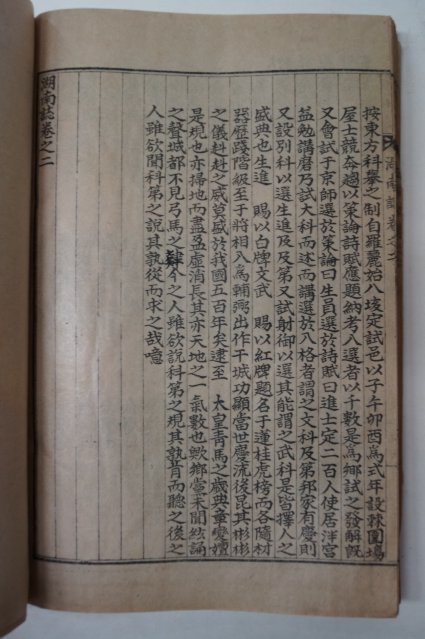 按東方科擧之制自羅麗始八垓定試邑以子午卯酉爲式年設棘圍場
屋士競奔趨以策論詩賦應題納考入選者以千數是爲鄕試之發解旣
又會試于京師選於策論曰生員選於詩賦曰進士定二百人使居泮宮
益勉講磨乃試大科而述而講選於八格者謂之文科及第邦家有慶則
又設別科以選生進及及第又試射御以選其能謂之武科是皆擇人之
盛典也生進 賜以白牌文武 賜以紅牌題名于蓮桂虎榜而各隨材
器歷踐階級至于將相入爲輔弼出作干城功顯當世慶流後昆其彬彬
之儀赳赳之威莫盛於我國五百年矣逮至 太皇靑馬之歲典章變嬗
是規也亦掃地而盡盈虛消長其亦天地之一氣數也歟鄕黨未聞絃誦
之聲城都不見弓馬之肄今之人雖欲說科第之規其孰肯而聽之後之
人雖欲聞科第之說其孰從而求之哉噫
湖南誌卷之二